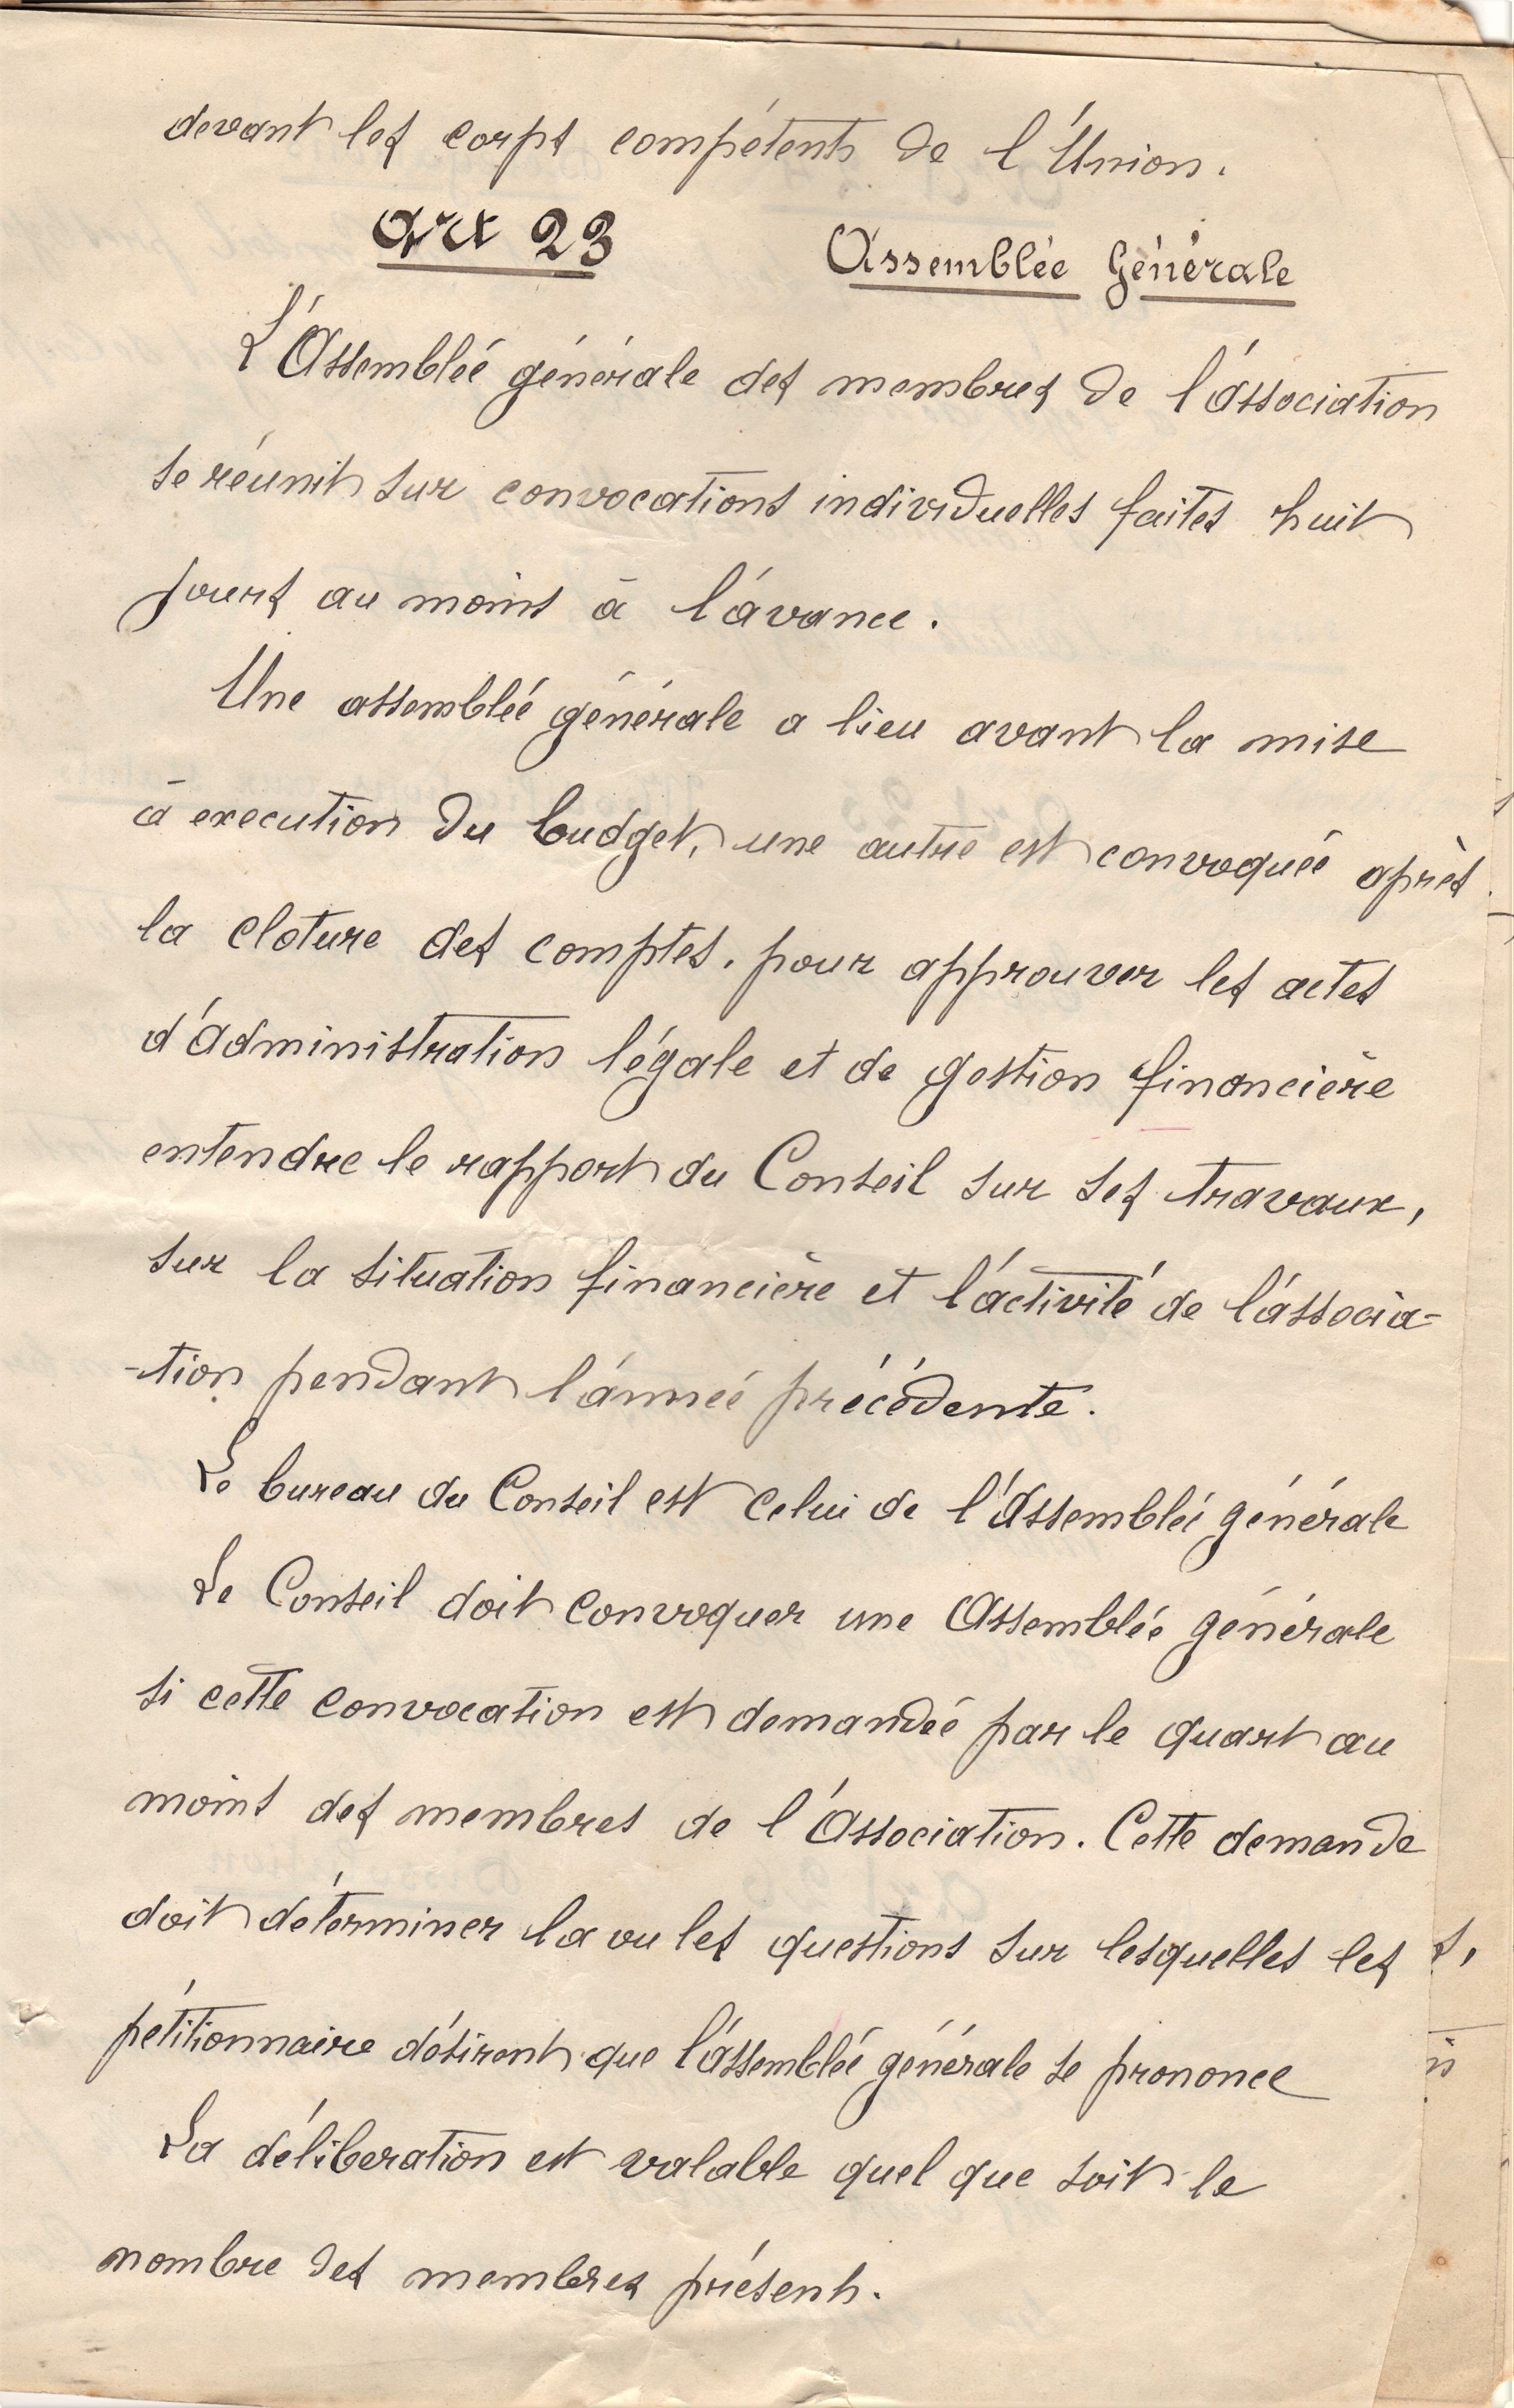 devant les corps compétents de l'Union.
Art 23 Assemblée Générale
L'Assemblée générale des membres de l'association
se réunit sur convocations individuelles faites huit
jours au moins à l'avance.
Une assemblée générale a lieu avant la mise
à execution du budget, une autre est convoquée après
la cloture des comptes. pour approuver les actes
d'administration légale et de gestion financière
entendre le rapport du Conseil sur ses travaux,
sur la situation financière et l'activité de l'associa-
-tion pendant l'année précédente.
Le bureau du Conseil est celui de l'Assemblée générale
Le Conseil doit convoquer une Assemblée générale
si cette convocation est demandée par le quart au
moins des membres de l'Association. Cette demande
doit déterminer la ou les questions sur lesquelles les
pétitionnaire désirent que l'assemblée générale se prononce
La déliberation est valable quel que soit le
nombre des membres présents.